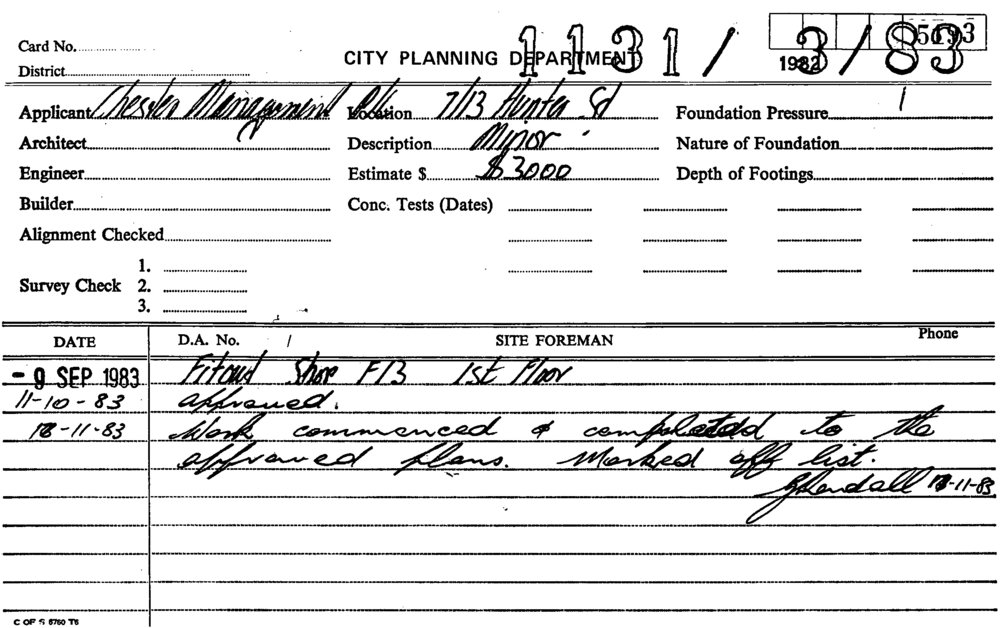 1131/3/83
5093
Card No.
CITY PLANNING DEPARTMENT
1982
District
Applicant Chester Management P/L Location 7/13 Hunter St Foundation Pressure
Architect Description Minor Nature of Foundation
Engineer Estimate $ $3000 Depth of Footings
Builder Conc. Tests (Dates)
Alignment Checked
1.
Survey Check 2.
3.
DATE D.A. No. / SITE FOREMAN Phone
- 9 SEP 1983 Fitout Shop F13 1st Floor
11-10-83 approved.
18-11-83 Work commenced & completed to the
approved plans. Marked off list.
18-11-83
C OF S 5760 T6